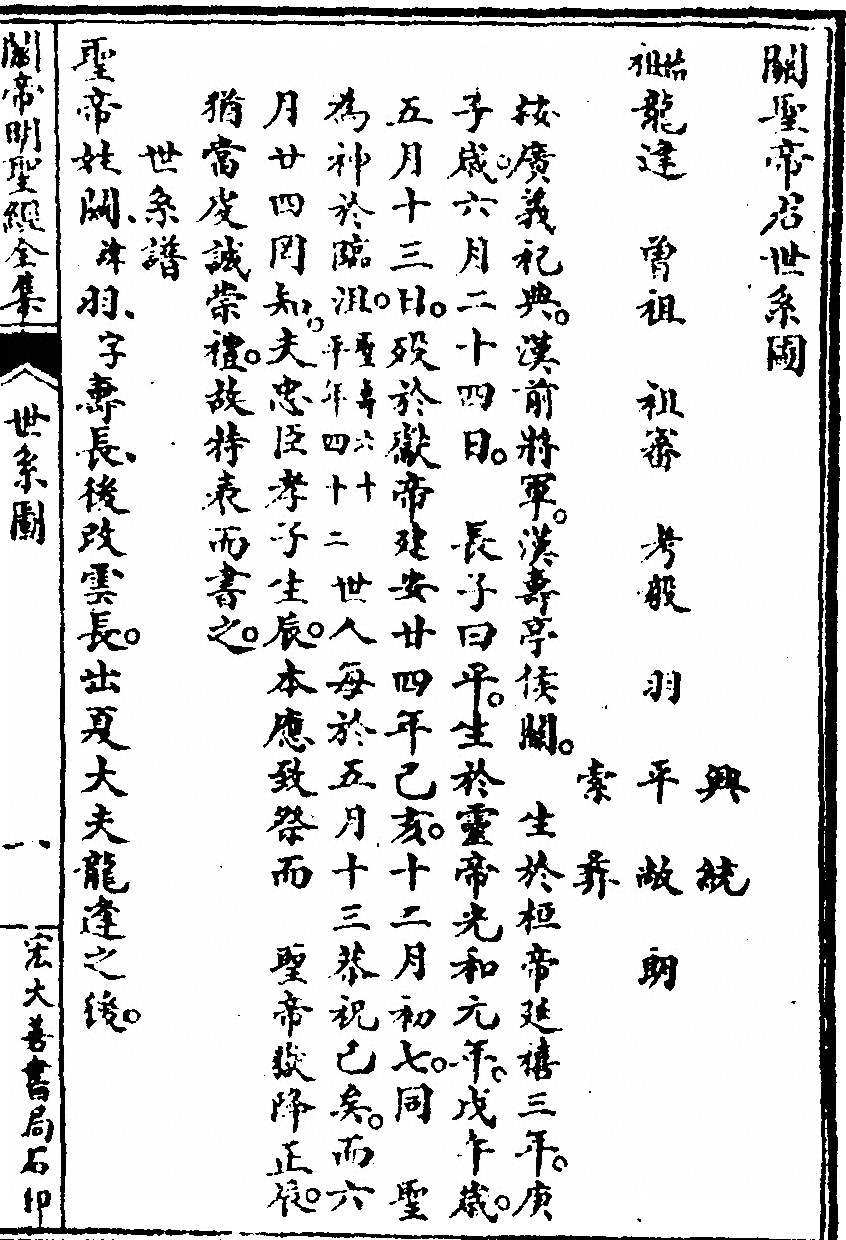 關聖帝君世系圖
興 統
始祖龍逄 曾祖 祖審 考毅 羽 平 敞 朗
索 彞
按廣義祀典。漢前將軍。漢壽亭侯關。 生於桓帝延禧三年。庚
子歲。六月二十四日。 長子曰平。生於靈帝光和元年。戊午歲。
五月十三日。歿於獻帝建安廿四年己亥。十二月初七。同 聖
為神於臨沮。聖壽六十平年四十二 世人每於五月十三恭祝已矣。而六
月廿四罔知。夫忠臣孝子生辰。本應致祭而 聖帝嶽降正辰。
猶當虔誠崇禮。故特表而書之。
世系譜
聖帝姓關、諱羽、字壽長、後改雲長。出夏大夫龍逄之後。
關帝明聖經全集 世系圖 八 宏大善書局石印